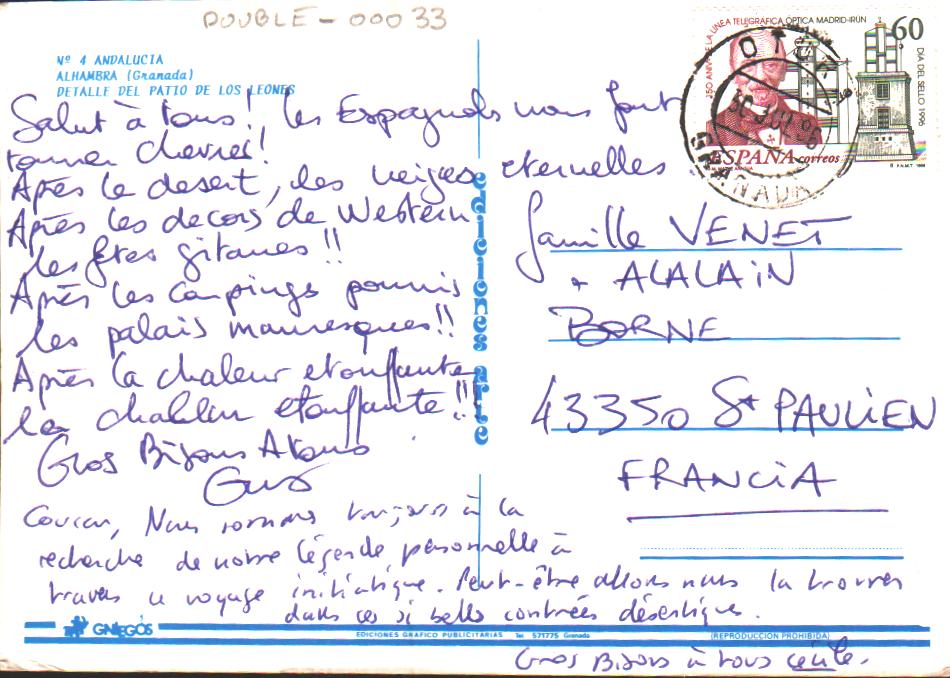 DOUBLE - 00033
Nº 4 ANDALUCIA
ALHAMBRA (Granada)
DETALLE DEL PATIO DE LOS LEONES
Salut à tous! les Espagnols nous font
tourner chevres!
Après le desert, les neiges eternelles
Après les decors de Western
les fêtes gitanes!!
Après les campings pourris
les palais mauresques!!
Après la chaleur etouffante
la chaleur etouffante!!
Gros Bisous A tous
Gus
Coucou, Nous sommes toujours à la
recherche de notre légende personnelle à
travers ce voyage initiatique. Peut-être allons nous la trouver
dans ces si belles contrées désertiques.
Gros Bisous à tous Cécile.
ediciones arte
150 ANIV. DE LA LINEA TELEGRAFICA OPTICA MADRID-IRUN
60
DIA DEL SELLO 1996
ESPAÑA correos
GRANADA
famille VENET
+ ALALAIN
BORNE
43350 St PAULIEN
FRANCIA
GALLEGOS
EDICIONES GRAFICO PUBLICITARIAS Tel 571775 Granada
(REPRODUCCION PROHIBIDA)